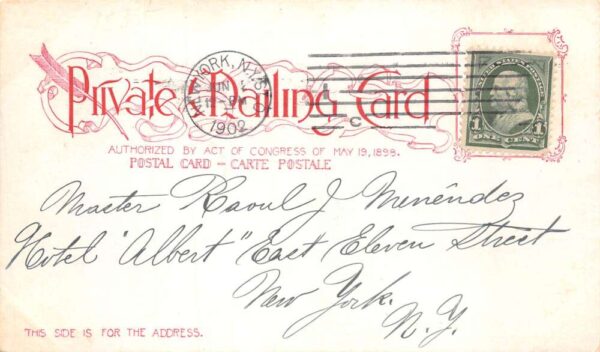 Private Mailing Card
NEW YORK, N.Y.
JUN
PM
1902
C
1 ONE CENT 1
AUTHORIZED BY ACT OF CONGRESS OF MAY 19, 1898.
POSTAL CARD – CARTE POSTALE
Master Raoul J Menéndez
Hotel "Albert" East Eleven Street
New York.
N.Y.
THIS SIDE IS FOR THE ADDRESS.